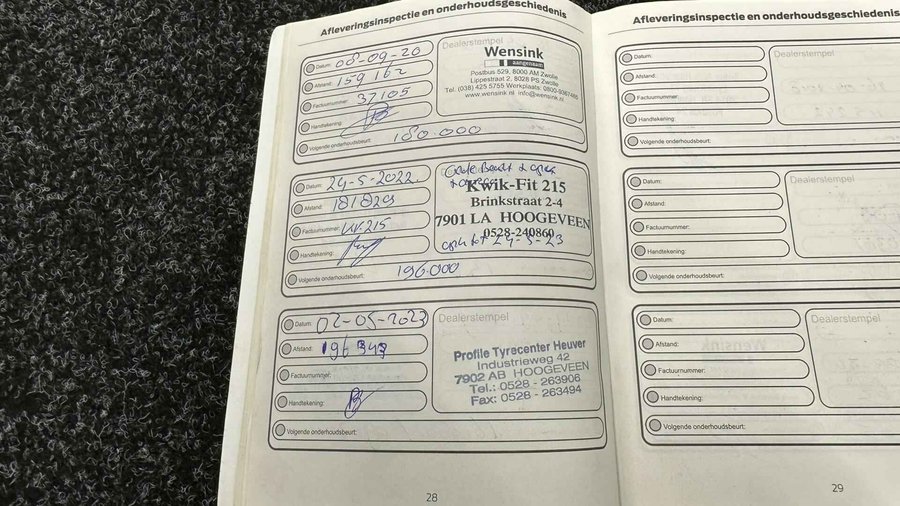 Afleveringsinspectie en onderhoudsgeschiedenis
Datum: 08-09-20
Afstand: 159162
Factuurnummer: 37105
Handtekening:
Volgende onderhoudsbeurt: 180.000
Dealerstempel
Wensink
aangenaam
Postbus 529, 8000 AM Zwolle
Lippestraat 2, 8028 PS Zwolle
Tel. (038) 425 5755 Werkplaats: 0800-9367465
www.wensink.nl info@wensink.nl
Datum: 24-5-2022
Afstand: 181829
Factuurnummer: KV-215
Handtekening:
Volgende onderhoudsbeurt: 196.000
Kwik-Fit 215
Brinkstraat 2-4
7901 LA HOOGEVEEN
0528-240860
tot 24-5-23
Datum: 02-05-2023
Afstand: 196343
Factuurnummer:
Handtekening:
Volgende onderhoudsbeurt:
Dealerstempel
Profile Tyrecenter Heuver
Industrieweg 42
7902 AB HOOGEVEEN
Tel.: 0528 - 263906
Fax: 0528 - 263494
28
Afleveringsinspectie en onderhoudsgeschiedenis
Datum:
Afstand:
Factuurnummer:
Handtekening:
Volgende onderhoudsbeurt:
Dealerstempel
Datum:
Afstand:
Factuurnummer:
Handtekening:
Volgende onderhoudsbeurt:
Dealerstempel
Datum:
Afstand:
Factuurnummer:
Handtekening:
Volgende onderhoudsbeurt:
Dealerstempel
29